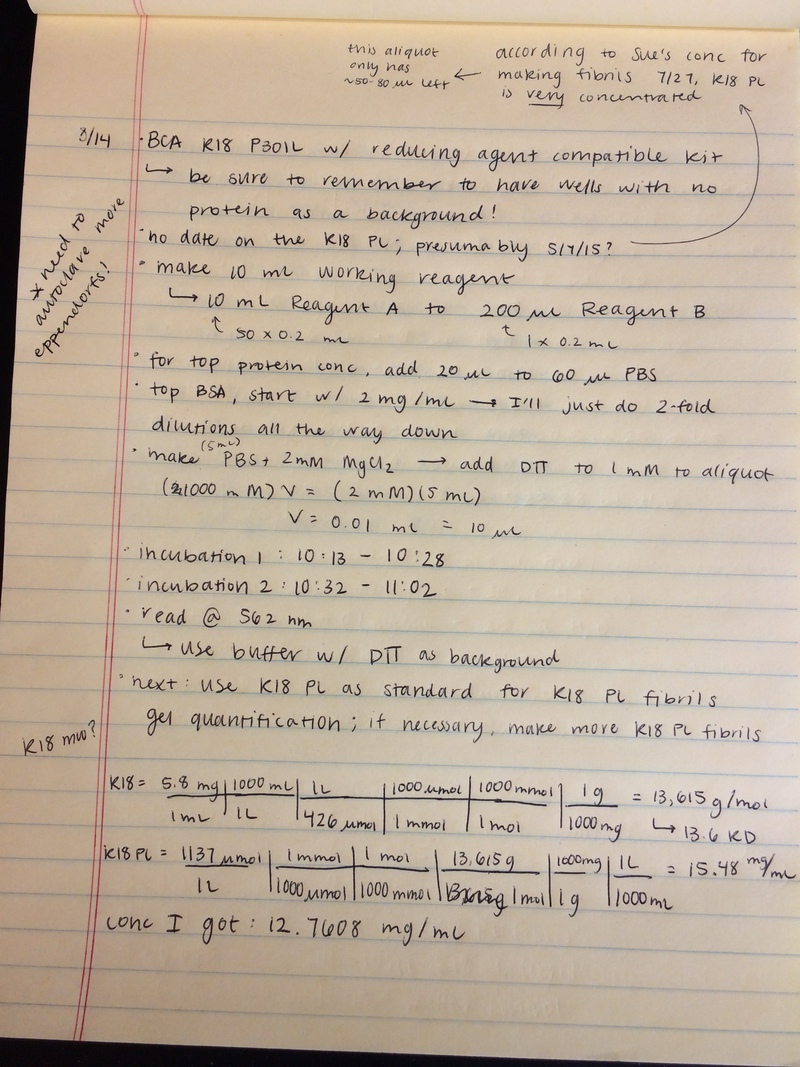 this aliquot
only has
~50-80 µL left ←
according to Sue's conc for
making fibrils 7/27, K18 PL
is very concentrated
8/14
· BCA K18 P301L w/ reducing agent compatible kit
↳ be sure to remember to have wells with no
protein as a background!
* need to
autoclave more
eppendorfs!
· no date on the K18 PL; presumably 5/7/15?
· make 10 mL working reagent
↳ 10 mL Reagent A to 200 µL Reagent B
↑ 50 x 0.2 mL ↑ 1 x 0.2 mL
· for top protein conc, add 20 µL to 60 µL PBS
· top BSA, start w/ 2 mg/mL → I'll just do 2-fold
dilutions all the way down
(5 mL)
· make PBS + 2mM MgCl2 → add DTT to 1 mM to aliquot
(1000 mM) V = (2 mM)(5 mL)
V = 0.01 mL = 10 µL
· incubation 1 : 10:13 - 10:28
· incubation 2 : 10:32 - 11:02
· read @ 562 nm
↳ use buffer w/ DTT as background
· next: use K18 PL as standard for K18 PL fibrils
gel quantification; if necessary, make more K18 PL fibrils
K18 mw?
K18 = 5.8 mg | 1000 mL | 1L | 1000 µmol | 1000 mmol | 1 g = 13,615 g/mol
1 mL | 1L | 426 µmol | 1 mmol | 1 mol | 1000 mg ↳ 13.6 KD
K18 PL = 1137 µmol | 1 mmol | 1 mol | 13,615 g | 1000mg | 1L = 15.48 mg/mL
1L | 1000 µmol | 1000 mmol | 1 mol | 1 g | 1000 mL
conc I got : 12.7608 mg/mL